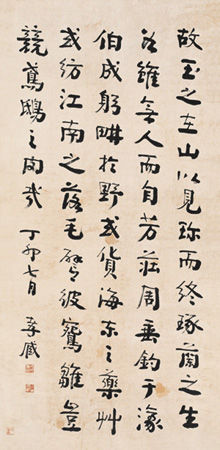 故玉之在山以見珍而終琢蘭之生
谷雖無人而自芳莊周垂釣于濠
伯成躬畊於野或貨海東之藥艸
或紡江南之落毛譬彼鵷雛豈
競鳶鴟之肉哉 丁卯七月 孝臧